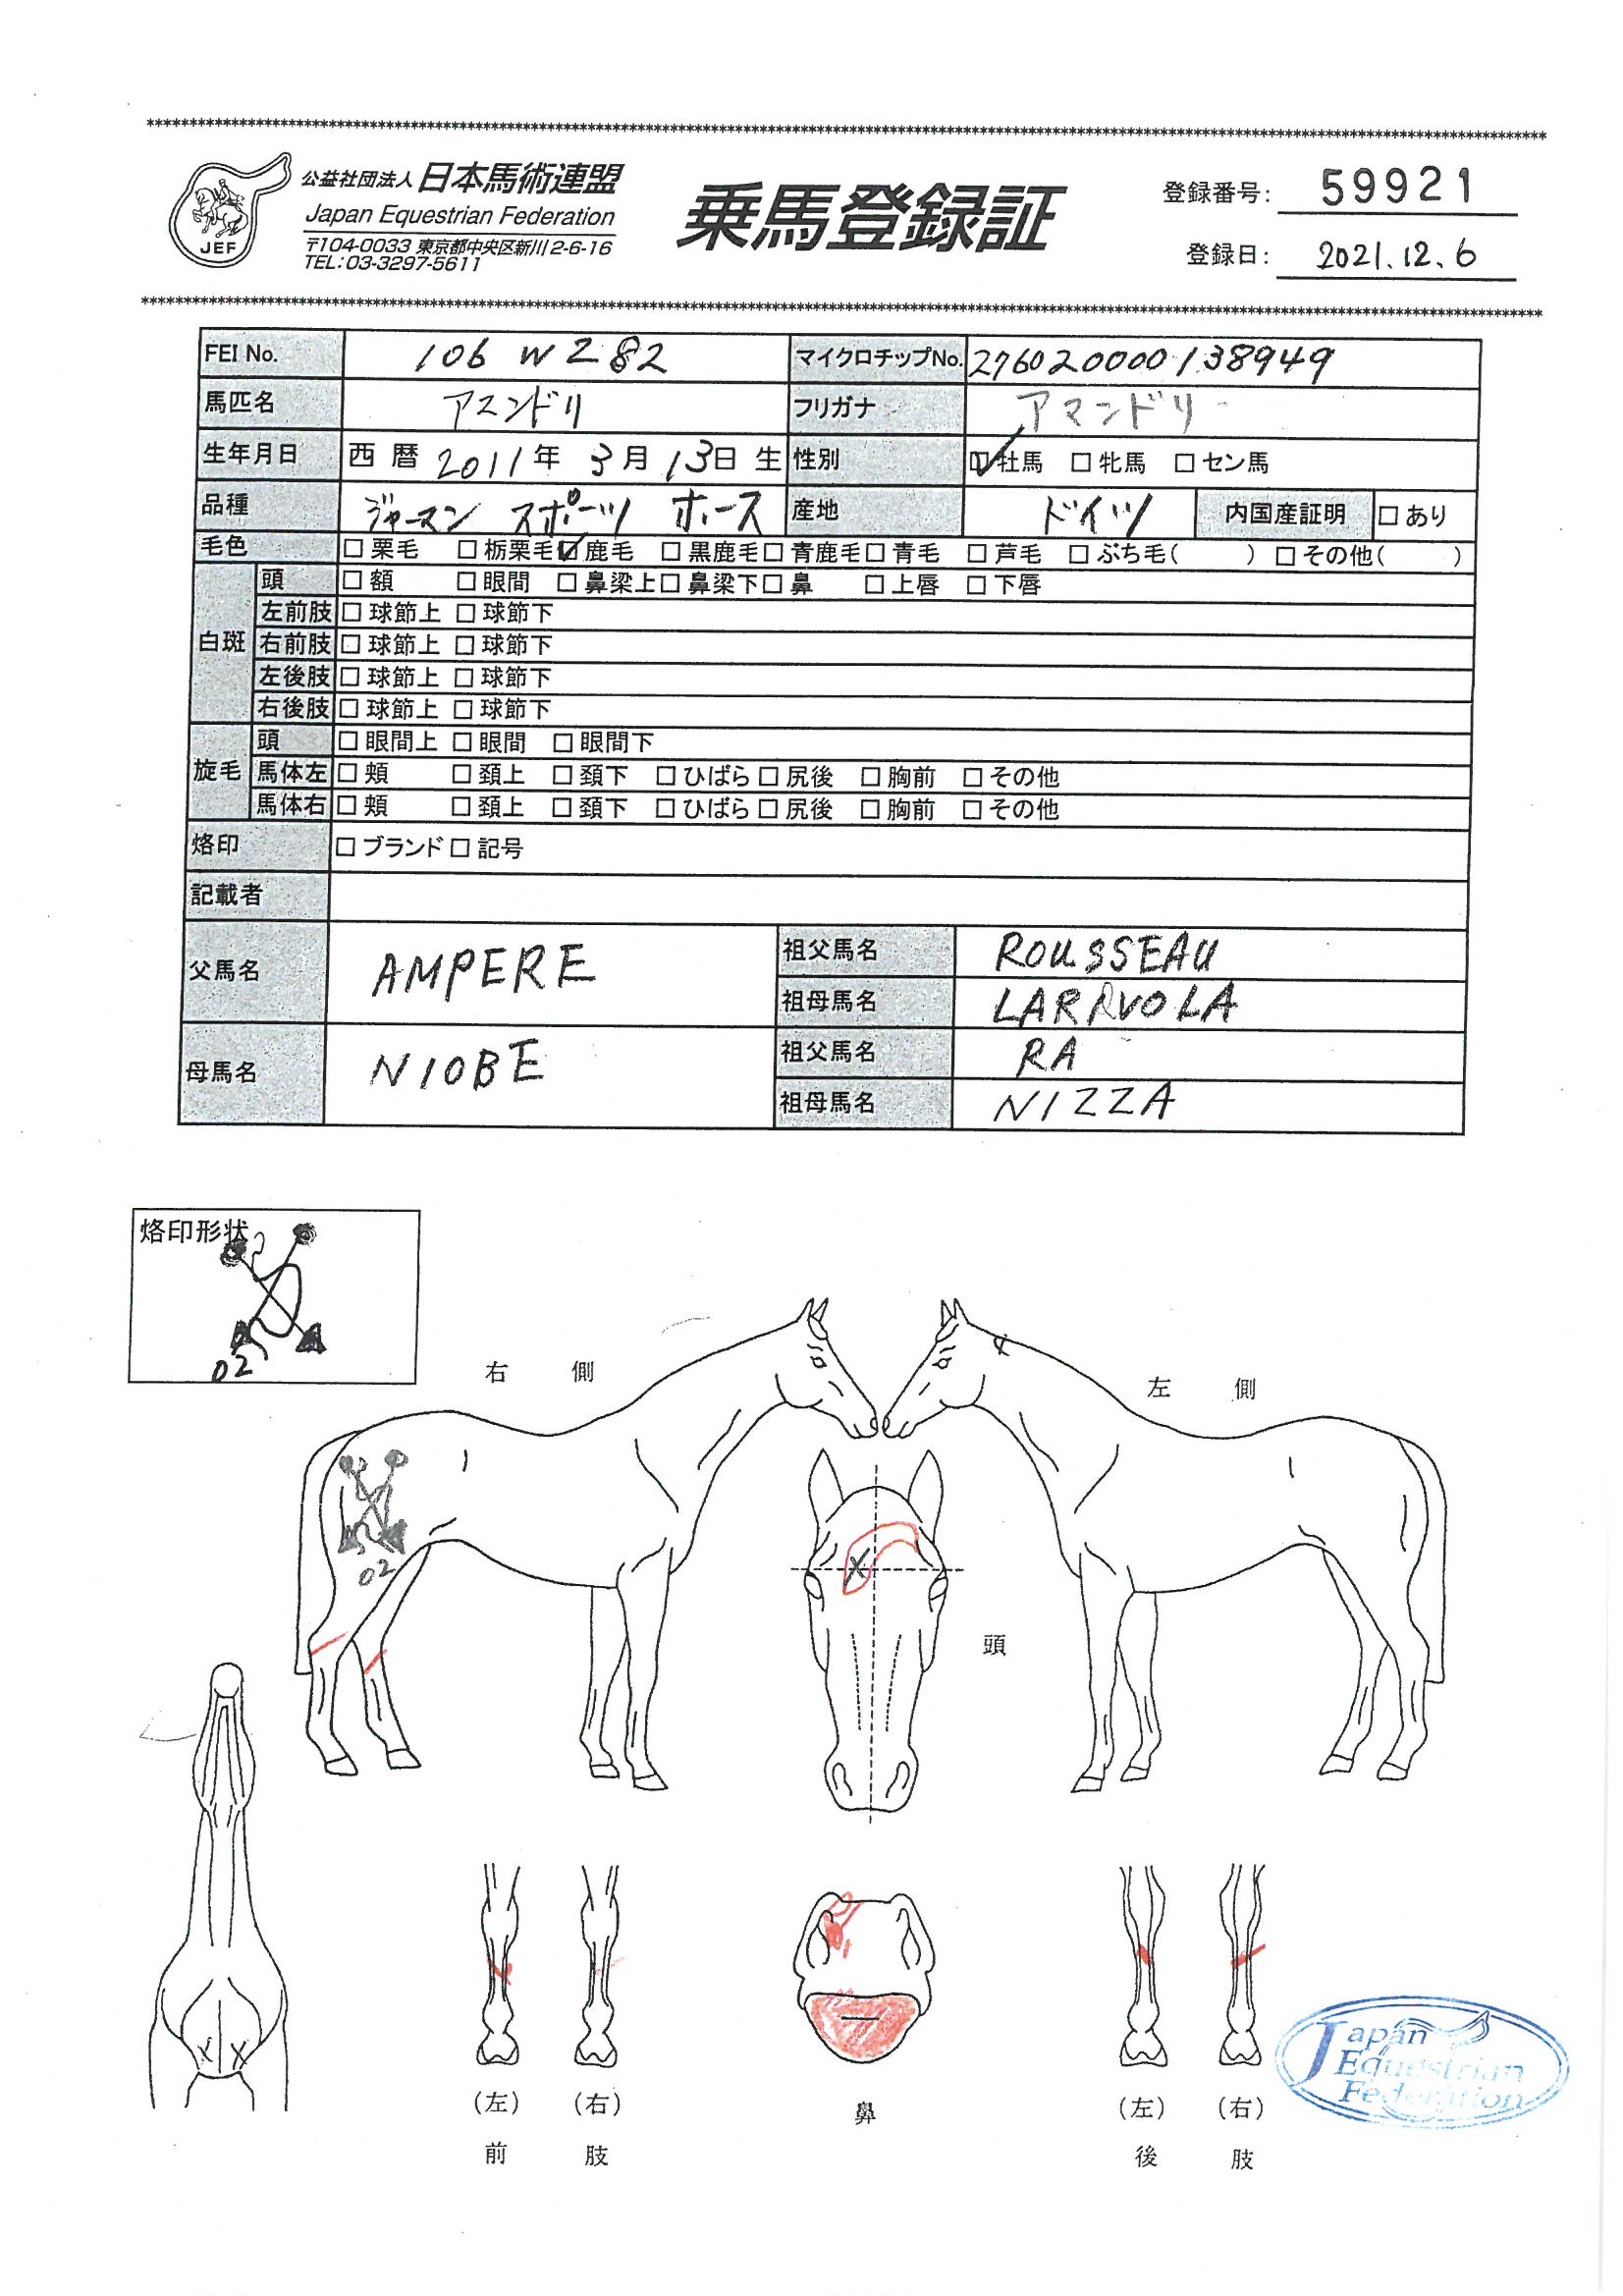 ****************************************************************
公益社団法人 日本馬術連盟
Japan Equestrian Federation
〒104-0033 東京都中央区新川2-6-16
TEL:03-3297-5611
JEF
乗馬登録証
登録番号: 59921
登録日: 2021.12.6
****************************************************************
FEI No. 106 WZ 82 マイクロチップNo. 276020000138949
馬匹名 アマンドリ フリガナ アマンドリ
生年月日 西暦 2011年 3月 13日 生 性別 ☑牡馬 □牝馬 □セン馬
品種 ジャーマン スポーツ ホース 産地 ドイツ 内国産証明 □あり
毛色 □栗毛 □栃栗毛 ☑鹿毛 □黒鹿毛 □青鹿毛 □青毛 □芦毛 □ぶち毛( ) □その他( )
白斑 頭 □額 □眼間 □鼻梁上 □鼻梁下 □鼻 □上唇 □下唇
左前肢 □球節上 □球節下
右前肢 □球節上 □球節下
左後肢 □球節上 □球節下
右後肢 □球節上 □球節下
旋毛 頭 □眼間上 □眼間 □眼間下
馬体左 □頬 □頚上 □頚下 □ひばら □尻後 □胸前 □その他
馬体右 □頬 □頚上 □頚下 □ひばら □尻後 □胸前 □その他
烙印 □ブランド □記号
記載者
父馬名 AMPERE 祖父馬名 ROUSSEAU
祖母馬名 LARAVOLA
母馬名 NIOBE 祖父馬名 RA
祖母馬名 NIZZA
烙印形状
02
右側 左側
02
頭
(左) (右) 鼻 (左) (右)
前肢 後肢
Japan
Equestrian
Federation